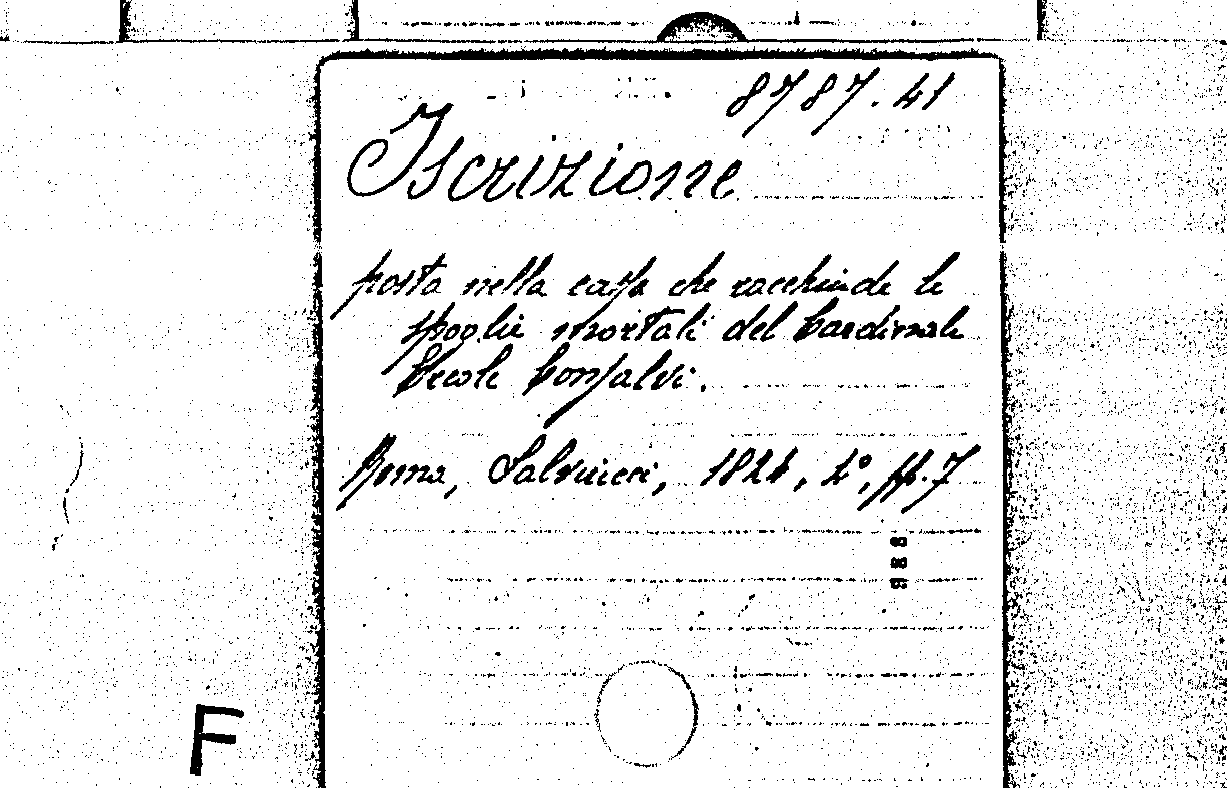 8787.41
Iscrizione
posta nella cassa che racchiude le
spoglie mortali del Cardinale
Ercole Consalvi.
Roma, Salviucci, 1824, 4º, pp. 7
F